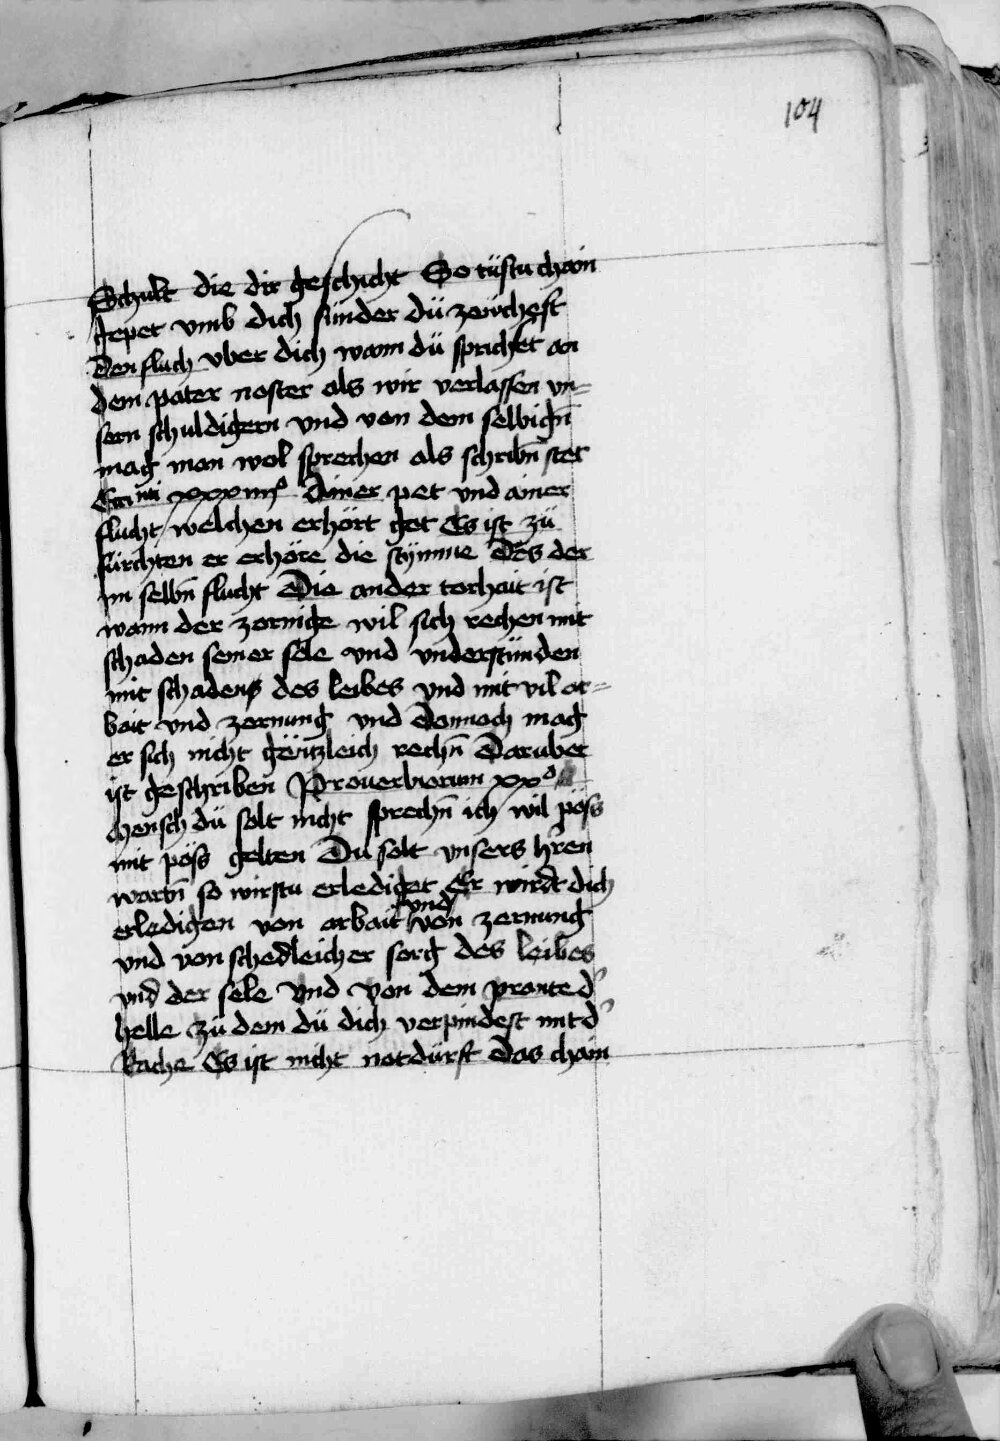 104
Schult die dir geschicht So tüstu chain
gepet vmb dich sünder dü zeüchest
den fluch vber dich wann dü sprichst an
dem pater noster als wir verlassen vn=
sern schuldigern vnd von dem selbign̄
mag man wol sprechen als schribn̄ stet
xxxiiiiº Ainer pet vnd ainer
flucht / welchen erhört got Es ist zü
fürchten er erhöre die stymme des der
im selbn̄ flucht Die ander torhait ist
wann der zornige wil sich rechen mit
schaden seiner sele vnd vnderstünden
mit schadens des leibes vnd mit vil ar=
bait vnd zernung vnd dannoch mag
er sich nicht gëntzleich rechn̄ Daruber
ist geschriben Prouerbiorum xxº
Mensch dü solt nicht sprechn̄ ich wil pöss
mit pöss gelten Du solt vnsers hren
wartn̄ so wirstu erlediget Er wirdt dich
erledigen von arbait vnd von zernung
vnd von schedleicher sorg des leibes
vnd der sele vnd von dem prante d'
helle zü dem dü dich verpindest mit d'
Rache Es ist nicht notdürft das chain